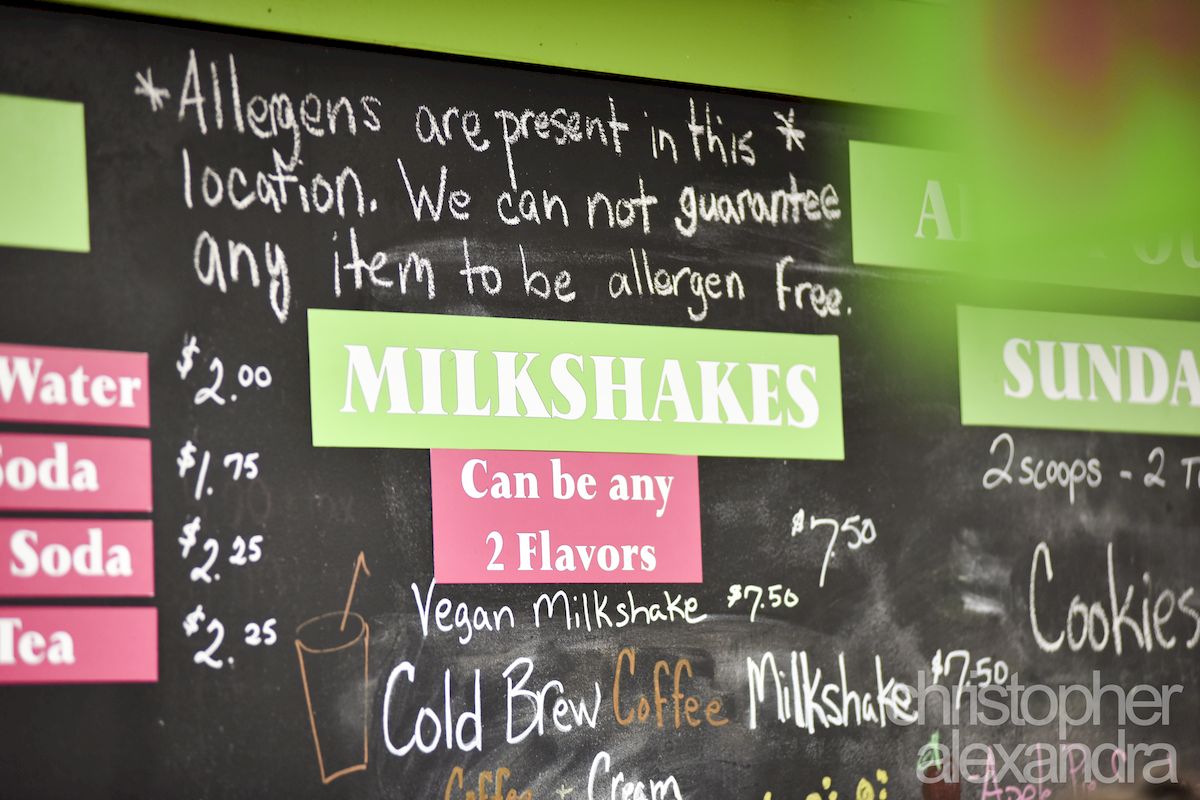 *Allergens are present in this*
location. We can not guarantee
any item to be allergen free.
Water $2.00
Soda $1.75
Soda $2.25
Tea $2.25
MILKSHAKES
Can be any
2 Flavors
$7.50
Vegan Milkshake $7.50
Cold Brew Coffee Milkshake $7.50
Coffee + Cream
2 scoops - 2
Cookies
christopher
alexandra